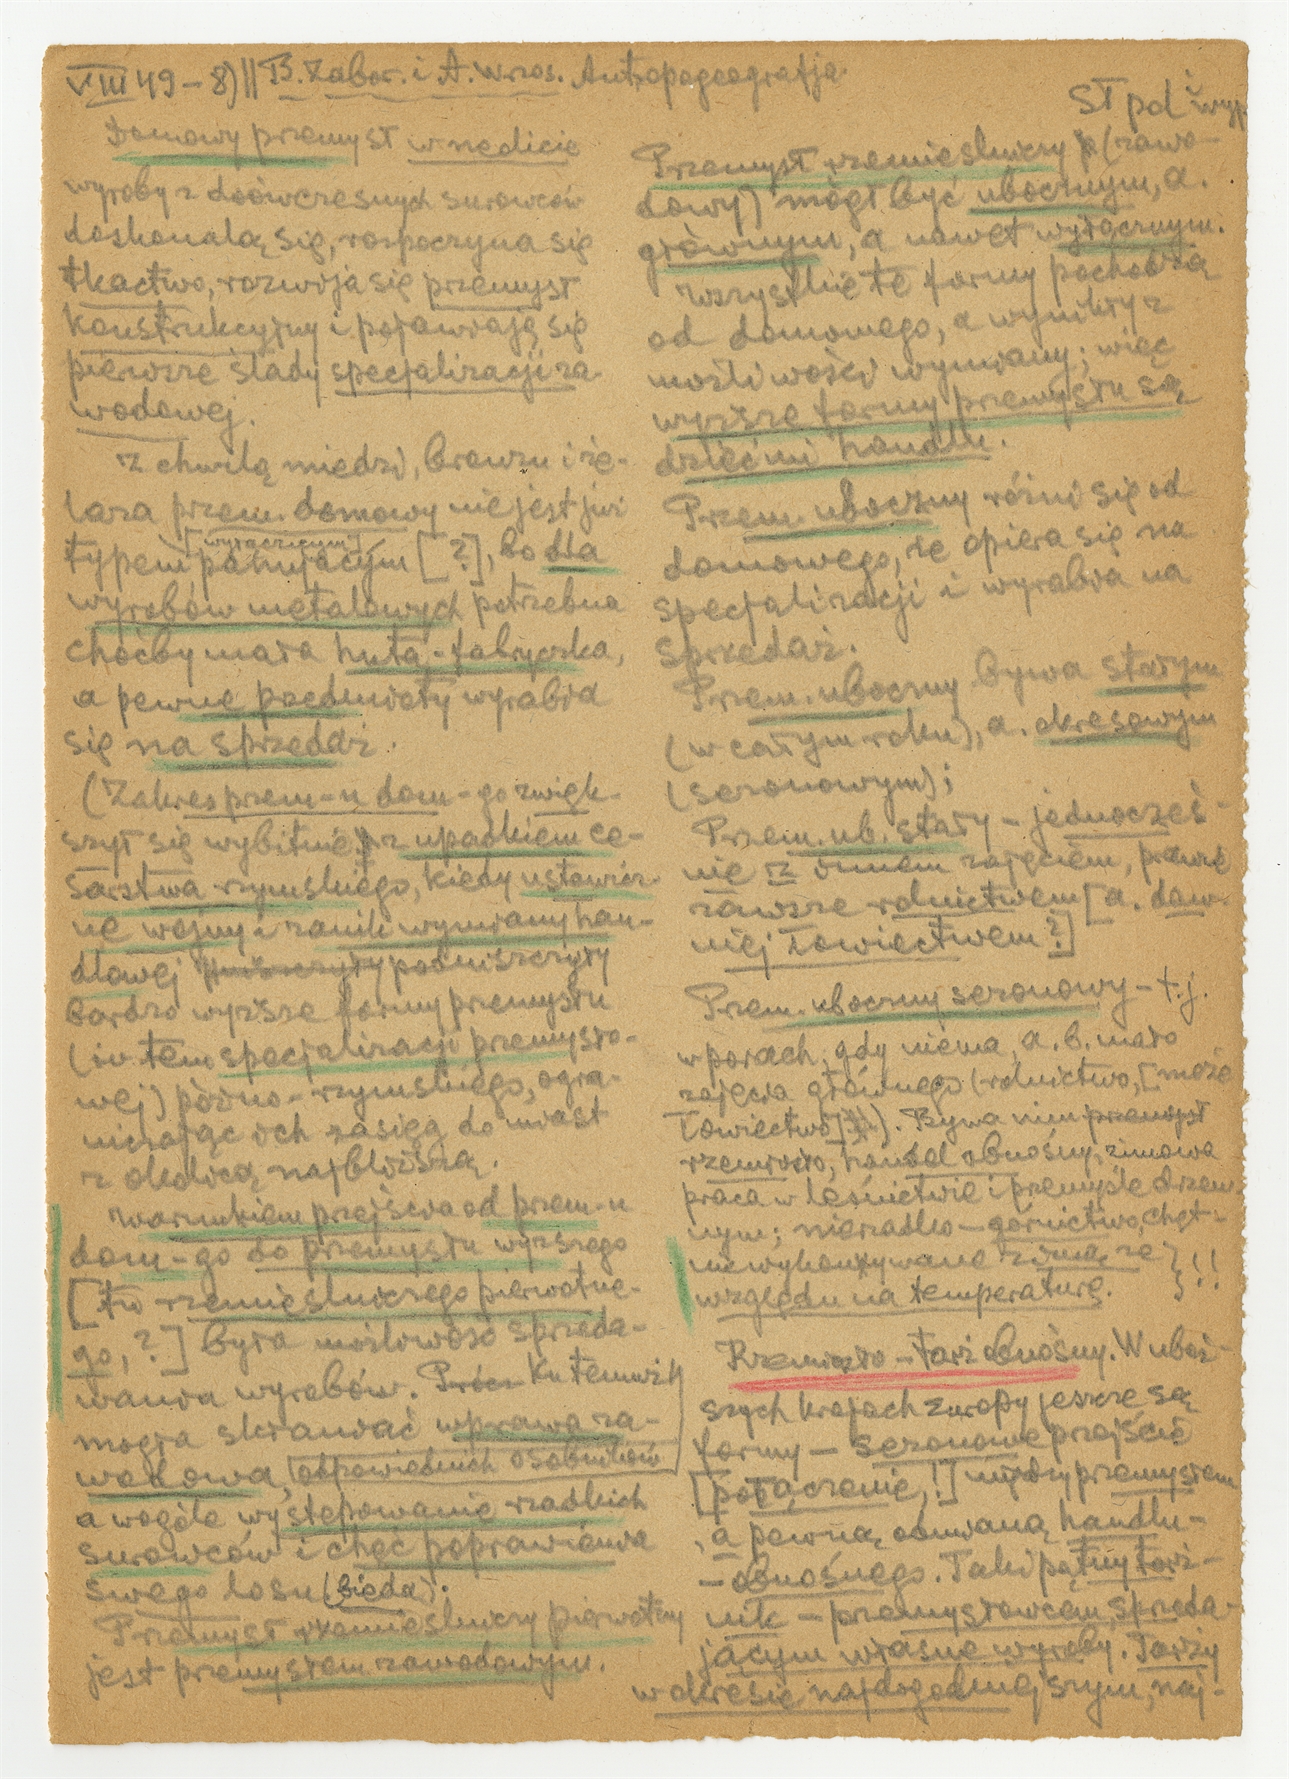 VIII 49 – 8) || B. Zabor. i A. Wrzos. Antropogeografja
St pd wyp
Domowy przemysł w neolicie
wyroby z doówczesnych surowców
doskonalą się, rozpoczyna się
tkactwo, rozwija się przemysł
konstrukcyjny i pojawiają się
pierwsze ślady specjalizacji za-
wodowej.
Z chwilą miedzi, bronzu i że-
laza przem. domowy nie jest już
[wyłącznym]
typem panującym [?], bo dla
wyrobów metalowych potrzebna
choćby mała huta-fabryczka,
a pewne przedmioty wyrabia
się na sprzedaż.
(Zakres przem-u dom-go zwięk-
szył się wybitnie z upadkiem ce-
sarstwa rzymskiego, kiedy ustawicz-
ne wojny i zanik wymiany han-
dlowej poniszczyły
bardzo wyższe formy przemysłu
(i w tem specjalizacji przemysło-
wej) późno-rzymskiego, ogra-
niczając ich zasięg do miast
z okolicą najbliższą.
Warunkiem przejścia od przem-u
dom-go do przemysłu wyższego
[tu rzemieślniczego pierwotne-
go, ?] była możliwość sprzeda-
wania wyrobów. Prócz Ku temu zaś
mogła skłaniać wprawa za-
wodowa, [odpowiednich osobników]
a wogóle występowanie rzadkich
surowców i chęć poprawienia
swego losu (bieda).
Przemysł rzemieślniczy pierwotny
jest przemysłem zawodowym.
Przemysł rzemieślniczy (zawo-
dowy) mógł być ubocznym, a.
głównym, a nawet wyłącznym.
Wszystkie te formy pochodzą
od domowego, a wynikły z
możliwości wymiany; więc
wyższe formy przemysłu są
dziećmi handlu.
Przem. uboczny różni się od
domowego, że opiera się na
specjalizacji i wyrabia na
sprzedaż.
Przem. uboczny bywa stałym
(w całym roku), a. okresowym
(sezonowym);
Przem. ub. stały – jednocześ-
nie z innem zajęciem, prawie
zawsze rolnictwem [a. daw-
niej łowiectwem?]
Przem. uboczny sezonowy – t.j.
w porach, gdy niema, a. b. mało
zajęcia głównego (rolnictwo, [może
łowiectwo]). Bywa nim przemysł
rzemiosło, handel obnośny, zimowa
praca w leśnictwie i przemyśle drzew-
nym; nierzadko – górnictwo, chęt-
nie wykonywane zimą ze } !!
względu na temperaturę.
Rzemiosło – targ obnośny. W uboż-
szych krajach Europy jeszcze są
formy – sezonowe przejście
[połączenie, !] między przemysłem
, a pewną odmianą handlu-
– obnośnego. Taki pątny targ-
nik – przemysłowcem, sprzeda-
jącym własne wyroby. Targi
w okresie najdogodniejszym, naj-